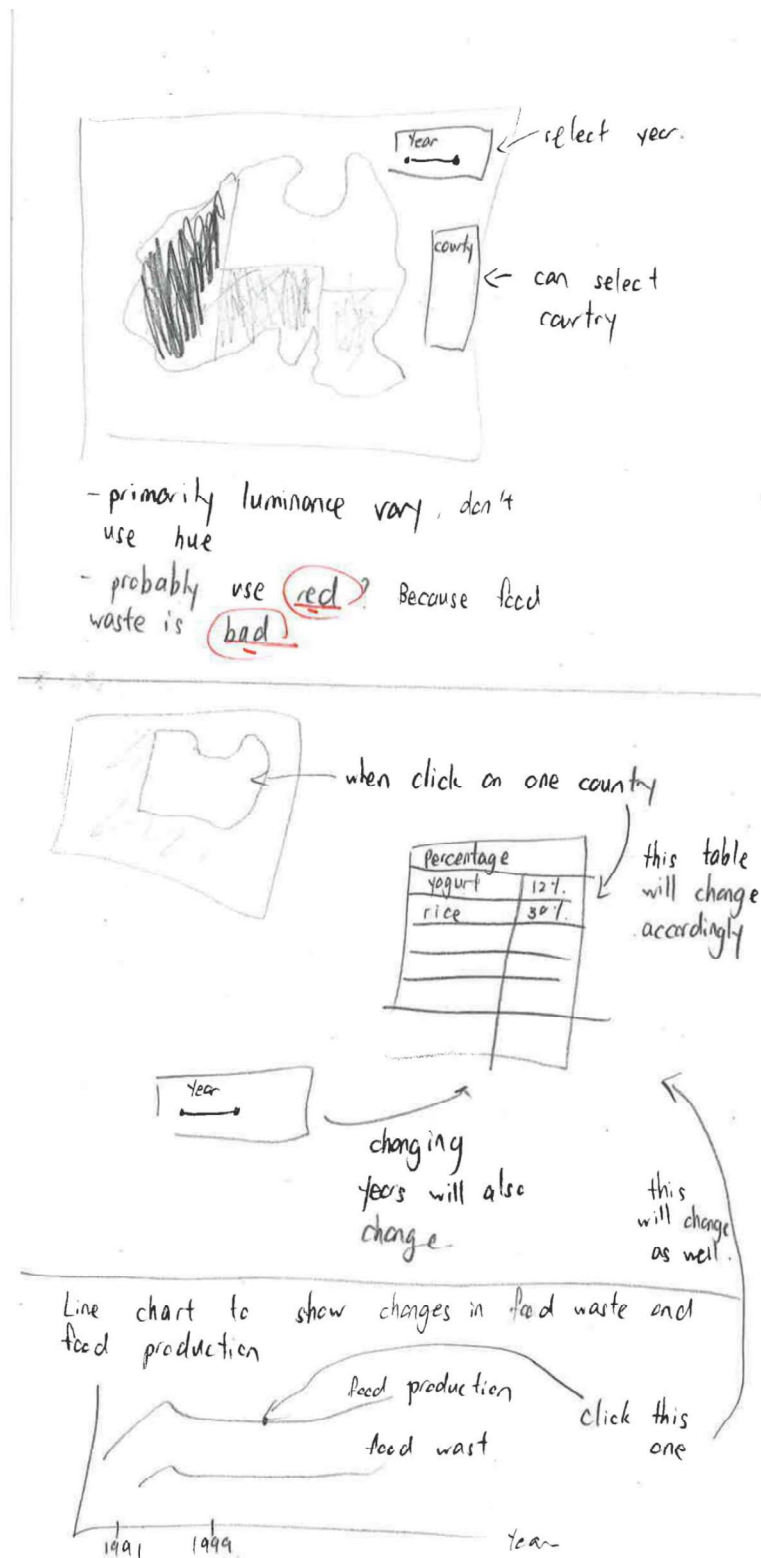 Year
select year.
county
can select
country
- primarily luminance vary. don't
use hue
- probably use red? Because food
waste is bad
when click on one country
Percentage
yogurt 12%.
rice 30%.
this table
will change
accordingly
Year
changing
years will also
change
this
will change
as well.
Line chart to show changes in food waste and
food production
food production
food wast
click this
one
1991 1999 Year